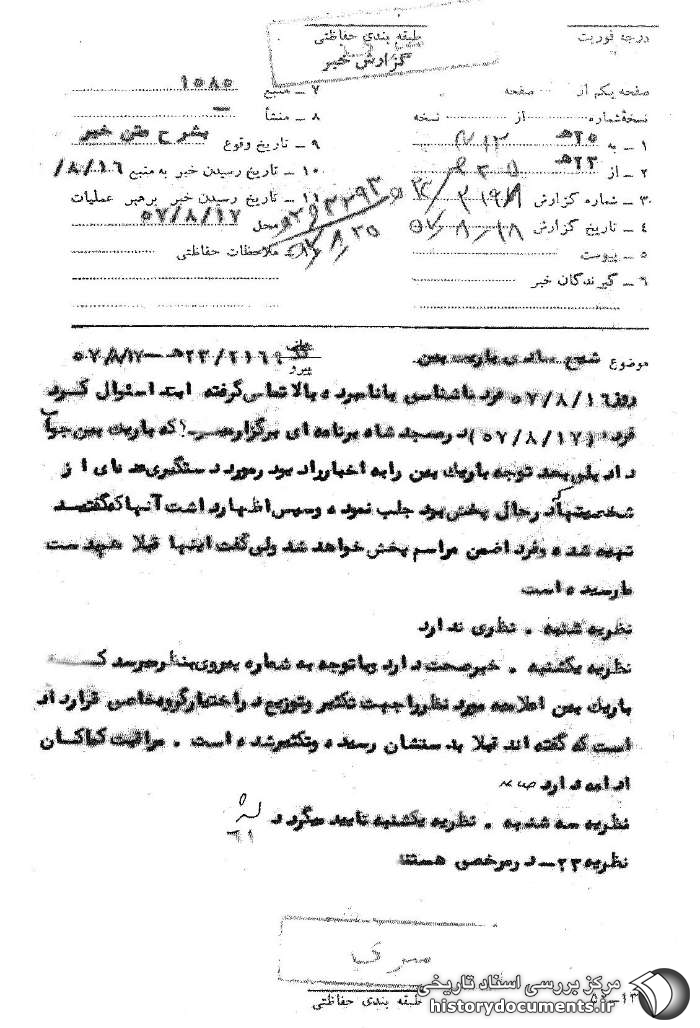 درجه فوریت
طبقه بندی حفاظتی
گزارش خبر
صفحه یکم از صفحه
نسخه شماره از نسخه
۱ ـ به ۲۵هـ ۳۱۲
۲ ـ از ۲۳هـ
۳۰ ـ شماره گزارش
۴ ـ تاریخ گزارش ۵۷/۸/۱۸
۵ ـ پیوست
۶ ـ گیرندگان خبر
۷ ـ منبع ۱۰۸۵
۸ ـ منشأ ـ
۹ ـ تاریخ وقوع بشرح متن خبر
۱۰ ـ تاریخ رسیدن خبر به منبع ۸/۱۶/
۱۱ ـ تاریخ رسیدن خبر برهبر عملیات
محل ۵۷/۸/۱۷
ملاحظات حفاظتی
۵۷/۸/۲۵
موضوع شیخ باریک بین
پیرو ۲۱۶۹/۲۳هـ ـ ۵۷/۸/۱۷
روز ۵۷/۸/۱۶ فرد ناشناسی با نامبرده بالا تماس گرفته ابتدا سئوال کرد
فردا (۵۷/۸/۱۷) در مسجد شاه برنامه ای برگزار میشود؟ که باریک بین جواب
داد بلی بعد توجه باریک بین را به اخبار رادیو در مورد دستگیری عده ای از
شخصیتها که در حال پخش بود جلب نموده و سپس اظهار داشت آنها که گفتید
تهیه شده و فردا ضمن مراسم پخش خواهد شد ولی گفت اینها قبلا هم بدست
ما رسیده است
نظریه شنبه . نظری ندارد
نظریه یکشنبه . خبر صحت دارد و با توجه به شماره پیروی بنظر میرسد که
باریک بین اعلامیه مورد نظر را جهت تکثیر و توزیع در اختیار گروه خاصی قرار داده
است که گفته اند قبلا بدستشان رسیده و تکثیر شده است . مراقبت کماکان
ادامه دارد
نظریه سه شنبه . نظریه یکشنبه تایید میگردد
۶۱
نظریه ۲۳ـ در مرخصی هستند
سری
طبقه بندی حفاظتی
مرکز بررسی اسناد تاریخی
historydocuments.ir